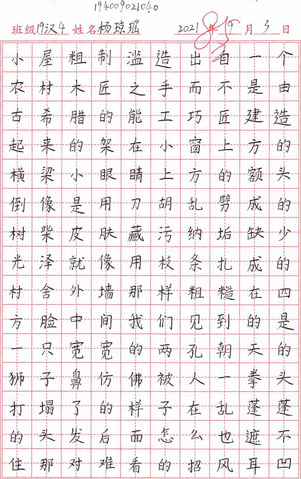 194009021040
班级19汉4 姓名杨琼瑶 2021年9月3日
小屋粗制滥造出自一个
农村木匠之手而不是由
古希腊的能工巧匠建造
起来的架在小窗上方的
横梁小眼睛上方的额头
倒像是用刀胡乱劈成的
树柴皮肤藏污纳垢缺少
光泽就像用枝条扎成的
村舍外墙那样粗糙在四
方脸中间我们见到的是
一只宽宽的两孔朝天的
狮子鼻仿佛被人一拳头
打塌了的样子在乱蓬蓬
的头发后面怎么也遮不
住那对难看的招风耳凹